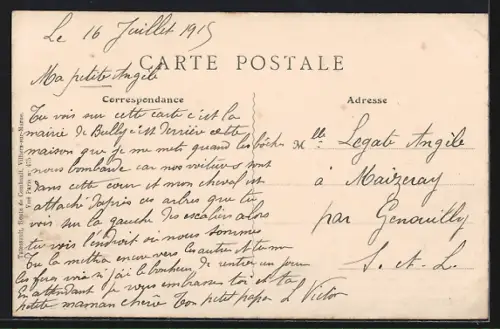 Le 16 Juillet 1915
CARTE POSTALE
Ma petite Angèle
Correspondance
Adresse
Tu vois sur cette carte c'est la
mairie de Bully c'est derrière cette
maison que je me mets quand les bôches
nous bombarde car nos voitures sont
dans cette cour et mon cheval est
attaché d'après ces arbres que tu
vois sur la gauche des escaliers alors
tu vois l'endroit où nous sommes
Tu la mettra encore vers les autres et tu me
les fera voir si j'ai le bonheur de rentrer un jour
en attendant je vous embrasse toi et ta
petite maman chérie Ton petit papa L Victor
Mlle Legate Angèle
à Maizeray
par Genouilly
S.-et-L.
Villiers-sur-Marne